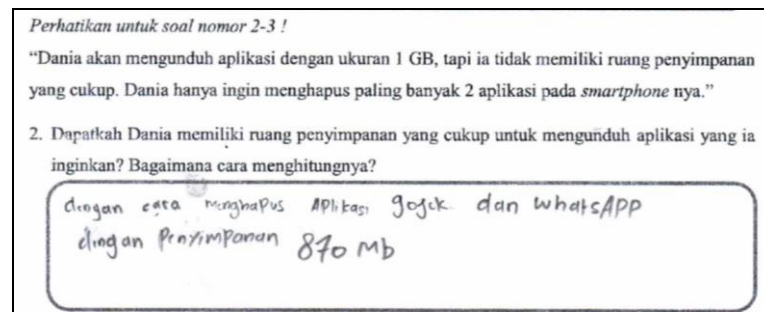 Perhatikan untuk soal nomor 2-3 !
“Dania akan mengunduh aplikasi dengan ukuran 1 GB, tapi ia tidak memiliki ruang penyimpanan
yang cukup. Dania hanya ingin menghapus paling banyak 2 aplikasi pada smartphone nya.”
2. Dapatkah Dania memiliki ruang penyimpanan yang cukup untuk mengunduh aplikasi yang ia
inginkan? Bagaimana cara menghitungnya?
dengan cara menghapus Aplikasi gojek dan whatsAPP
dengan Penyimpanan 870 Mb